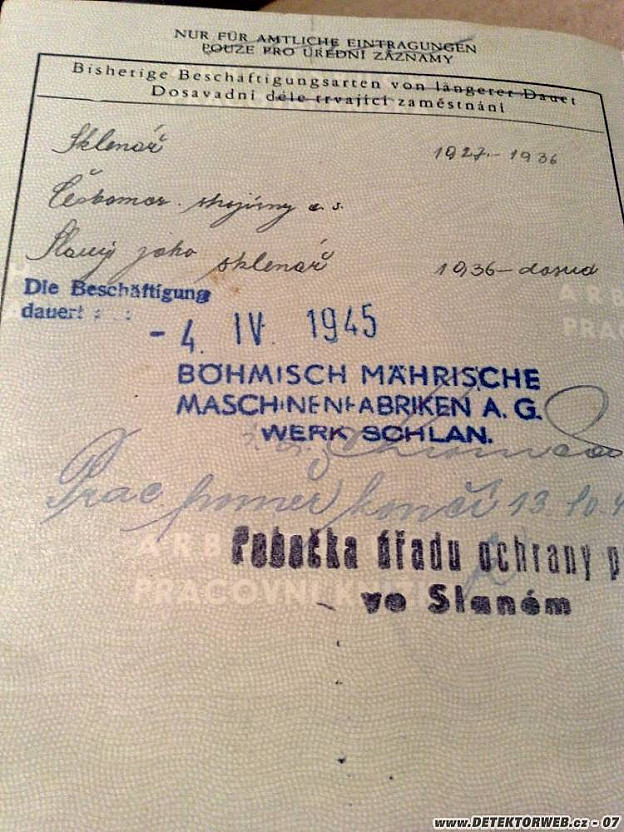 NUR FÜR AMTLICHE EINTRAGUNGEN
POUZE PRO ÚŘEDNÍ ZÁZNAMY
Bisherige Beschäftigungsarten von längerer Dauer
Dosavadní déle trvající zaměstnání
Sklenář 1927-1936
Českomor. strojírny a.s.
Slaný jako sklenář 1936-dosud
Die Beschäftigung
dauert : :
- 4. IV. 1945
BÖHMISCH MÄHRISCHE
MASCHINENFABRIKEN A.G.
WERK SCHLAN.
Prac poměr končí 13. 10. 4
ARB
PRA
ARB
Pobočka úřadu ochrany p
PRACOVNÍ KNÍŽ
ve Slaném
www.DETEKTORWEB.cz - 07